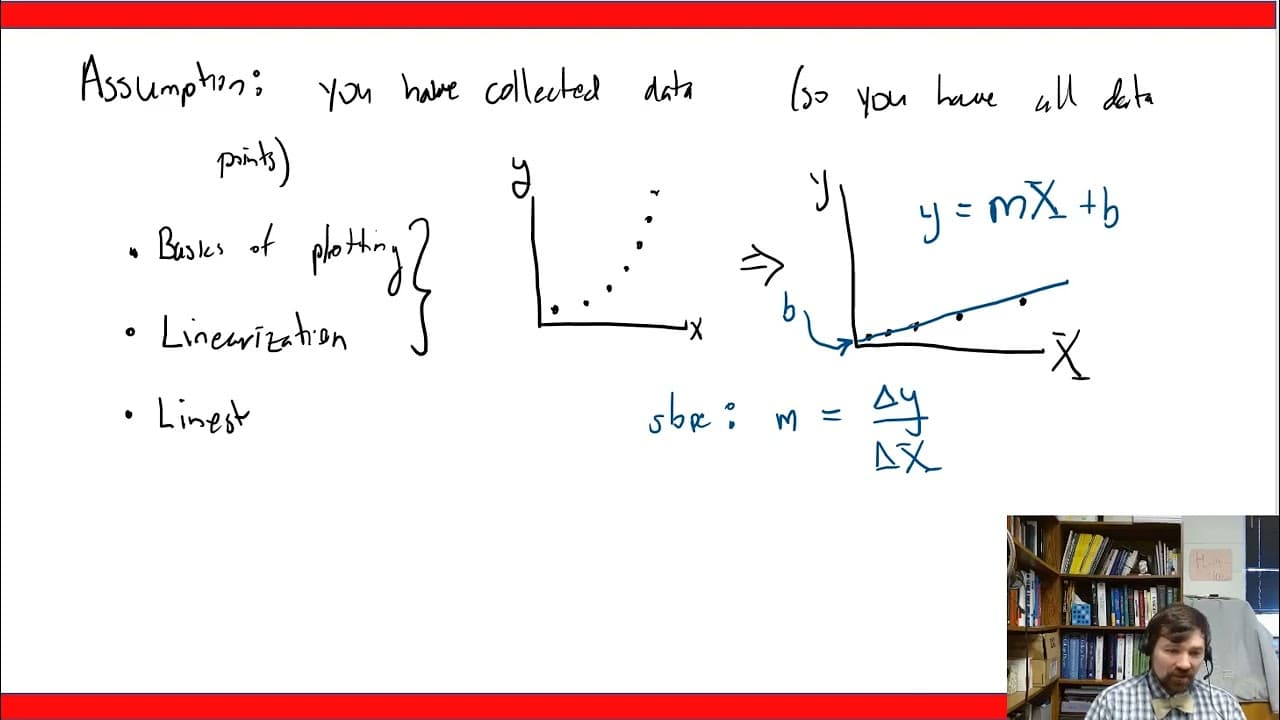 Assumption: you have collected data (so you have all data
points)
• Basics of plotting
• Linearization
• Linest
y
x
⇒
y
y = mX + b
b
X
slope: m = Δy/ΔX